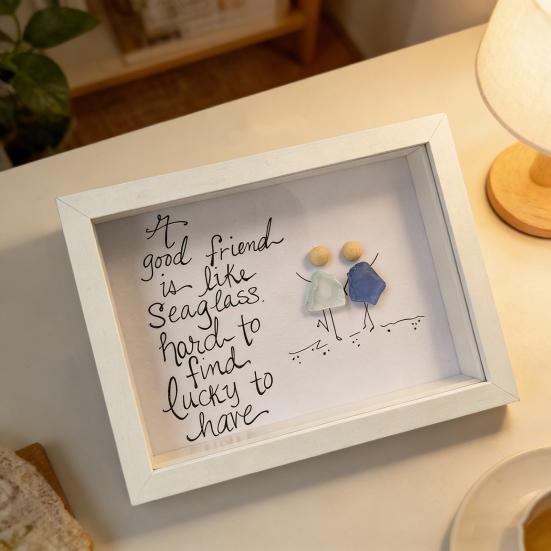 A
good friend
is like
Seaglass.
hard to
find
lucky to
have